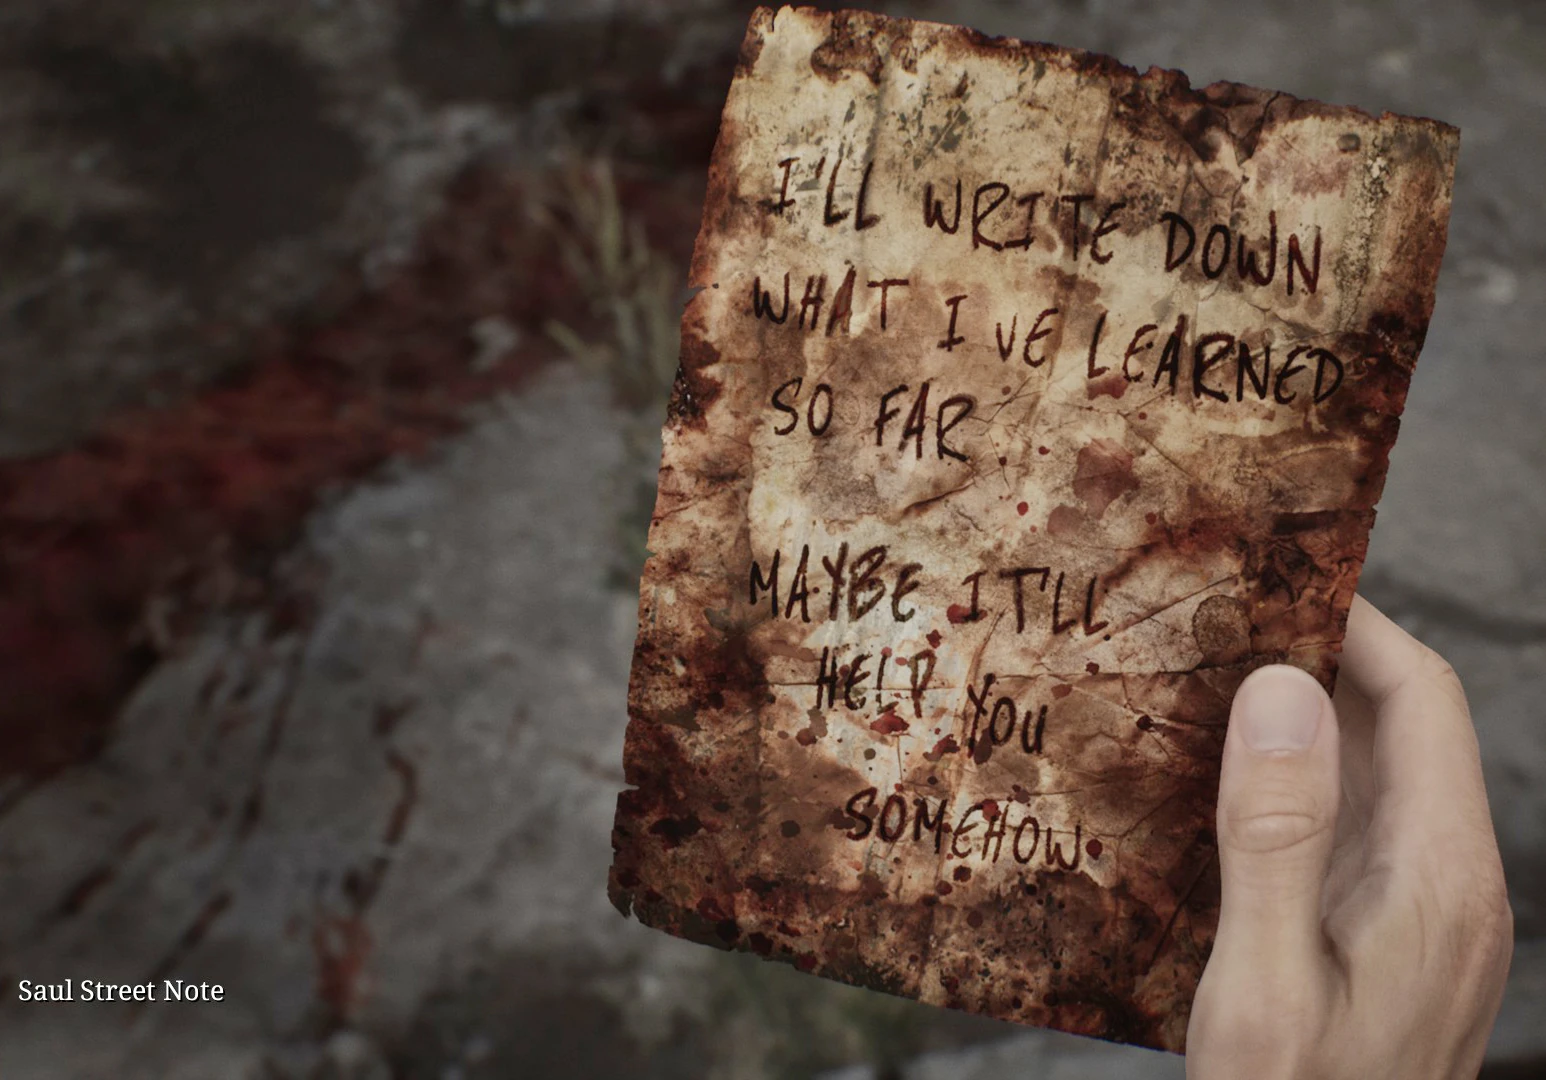 I'LL WRITE DOWN
WHAT I'VE LEARNED
SO FAR
MAYBE IT'LL
HELP YOU
SOMEHOW.
Saul Street Note